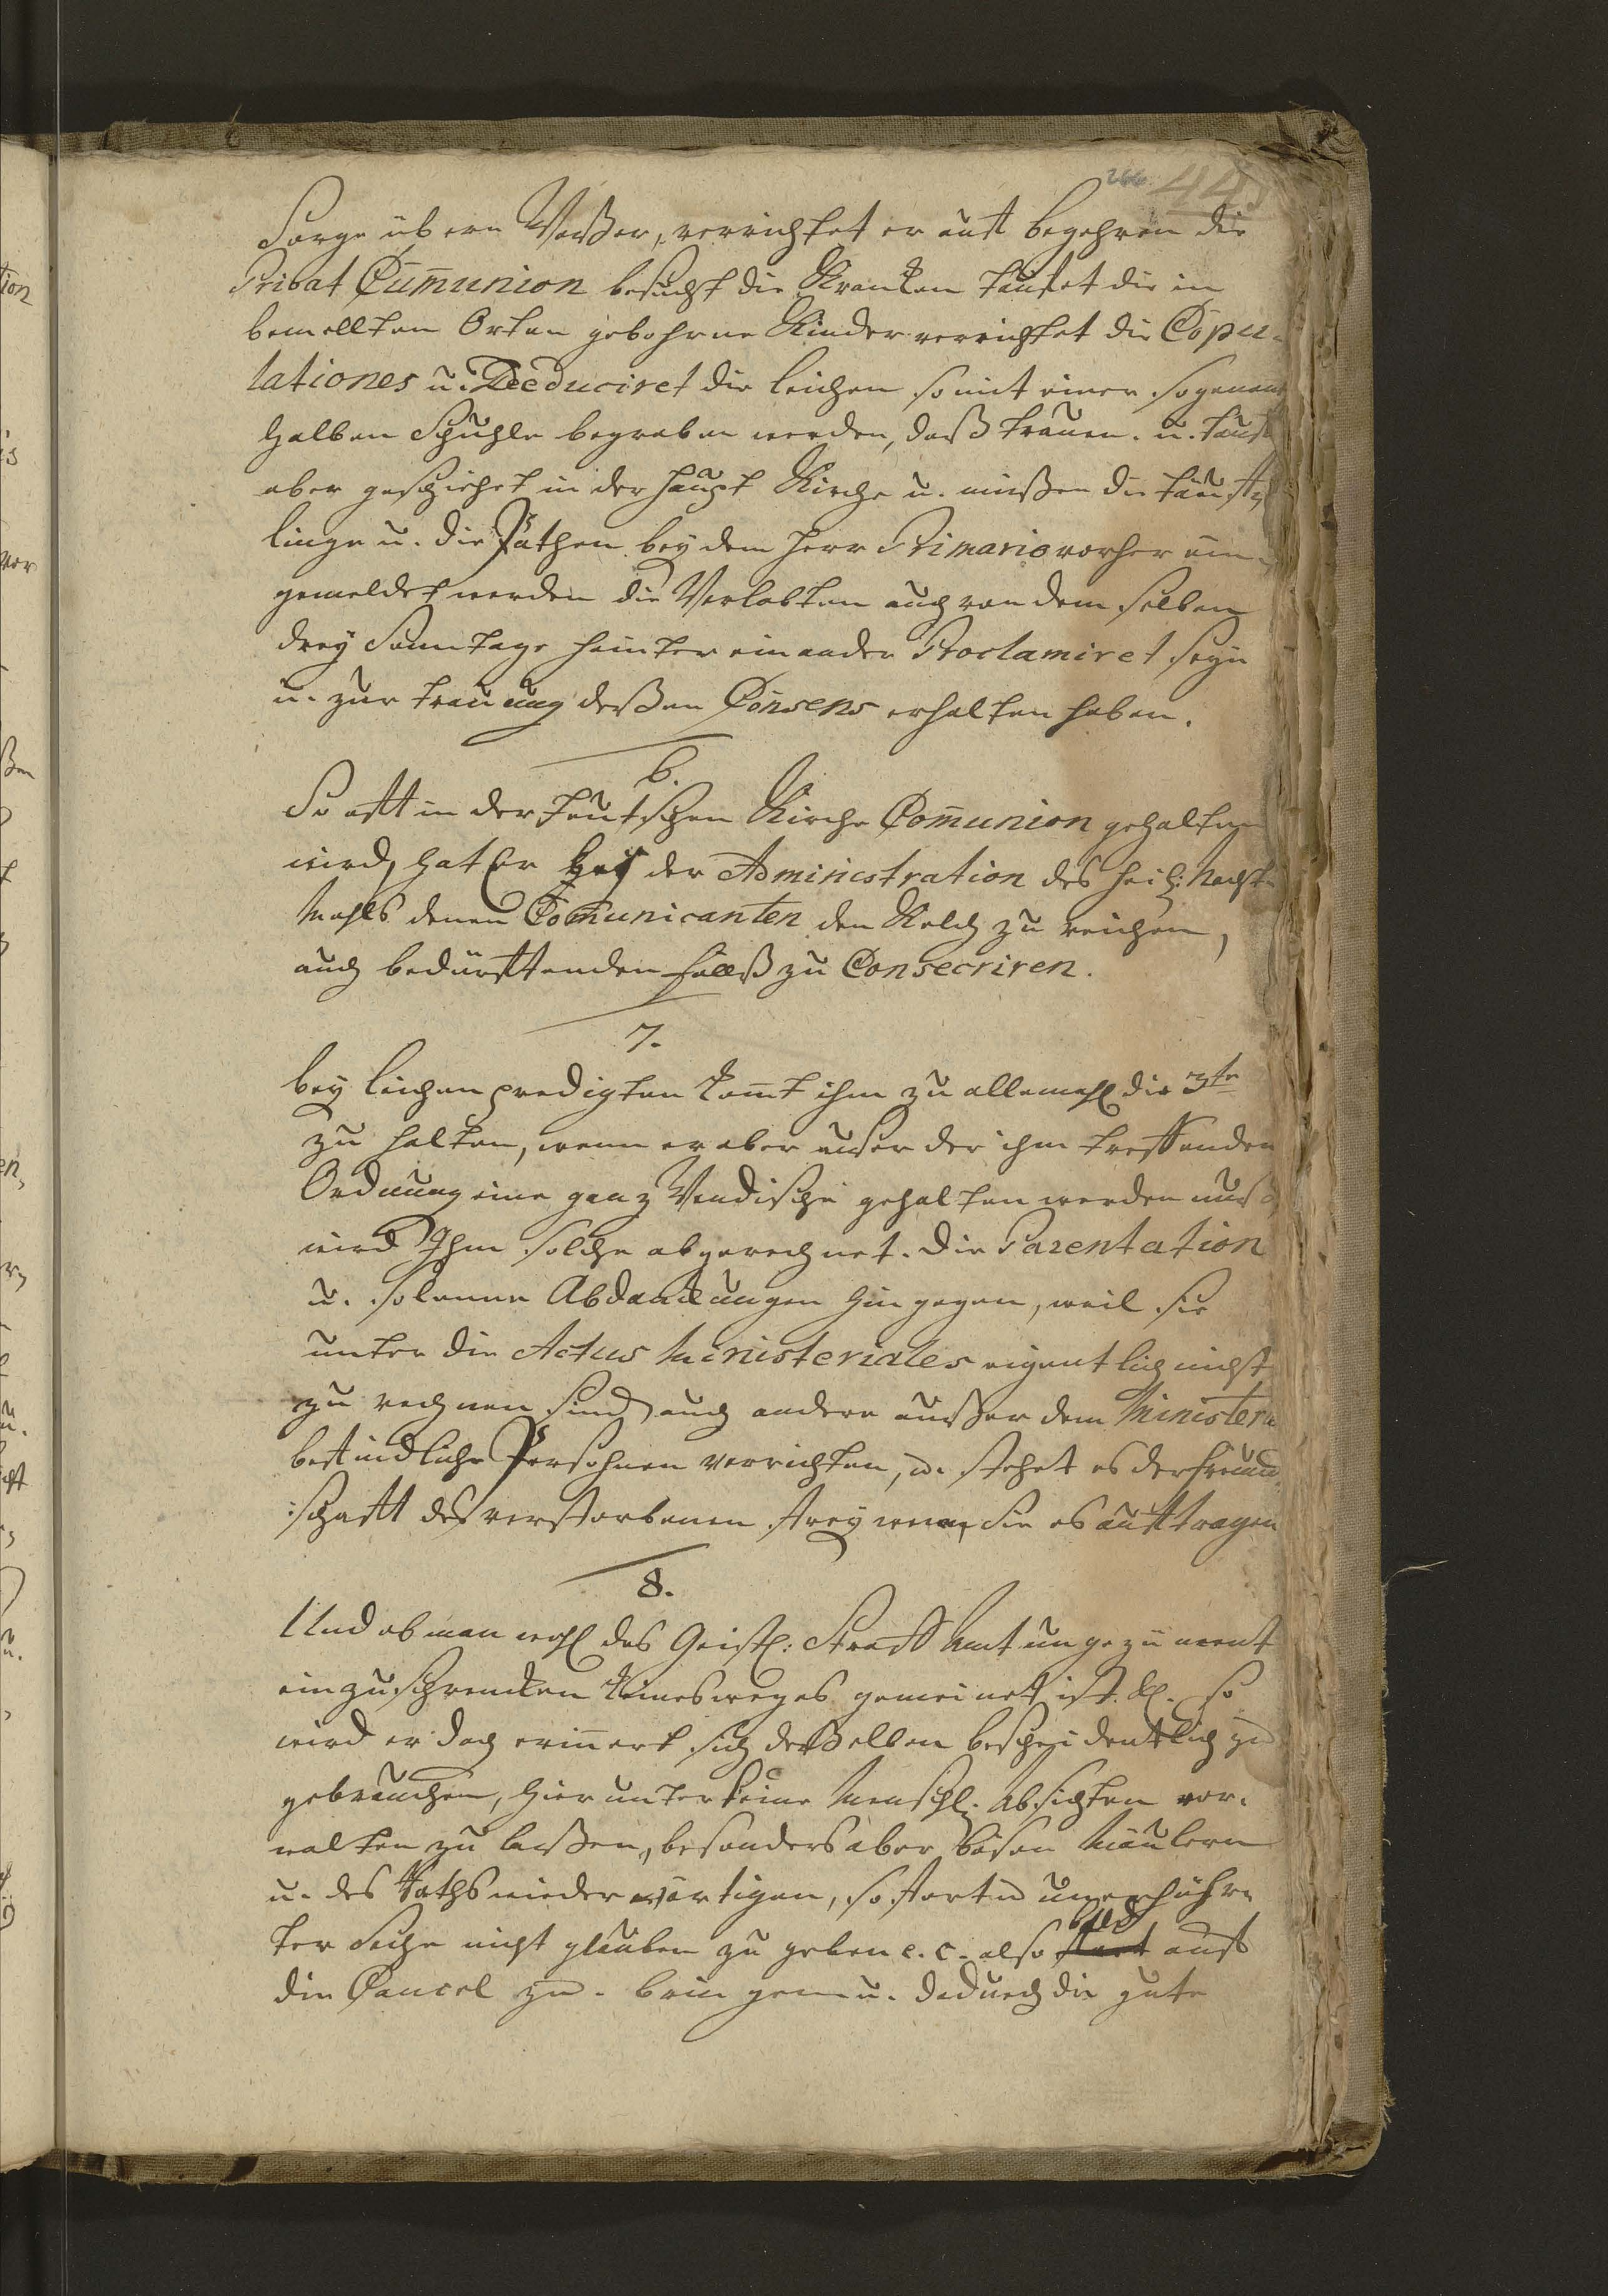 266 445
Sorge übern Waßer, verrichtet er auff begehren die
Privat Cummunion besucht die Krancken tauffet die in
bemelten Orten gebohrne Kinder verrichtet die Copu-
lationes u. Deeduciret die leichen so mit einer sogenant
halben Schuhle begraben werden, daß trauen. u. tauff
aber geschiehet in der haupt Kirche u. müßen die täuff-
linge u. die Pathen bey dem herr Primario vorher an-
gemeldet werden die Verlobten auch von dem selben
drey Sonntage hinter einander Proclamiret seyn
u. zur trauung deßen Consens erhalten haben.
6.
So offt in der teutschen Kirche Com̄union gehalten
wird, hat Er bey der Administration des heil: Nacht-
Mahls denen Com̄unicanten den Kelch zu reichen,
auch bedürffenden fallß zu Consecriren.
7.
bey leichen predigten kom̄t ihm zu allemahl die 3te
zu halten, wenn er aber außer der ihm treffenden
Ordnung eine ganz Wendische gehalten werden muß,
wird Ihm solche abgerechnet. Die Parentation
u. solenne Abdanckungen hingegen, weil sie
unter die Actus Ministeriales eigentlich nicht
zu rechnen sind, auch andere außer dem Ministerio
befindliche Persohnen verrichten, u. stehet es der freund-
schafft des verstorbenen frey wem sie es aufftragen
8.
Und ob man wohl das Geistl: Straff Amt ungeziement
einzuschrencken keinesweges gemeinet ist. so
wird er doch erin̄ert sich deßelben bescheidentlich zu
gebrauchen, hierunter keine Menschl: Absichten vor-
walten zu laßen, besonders aber bösen Mäulern
u. des Raths wiederwärtigen, sofort in unerhöhr-
ter Sache nicht glauben zu geben e. c. also bald auff
die Cancel zu. bringen u. dadurch die gute